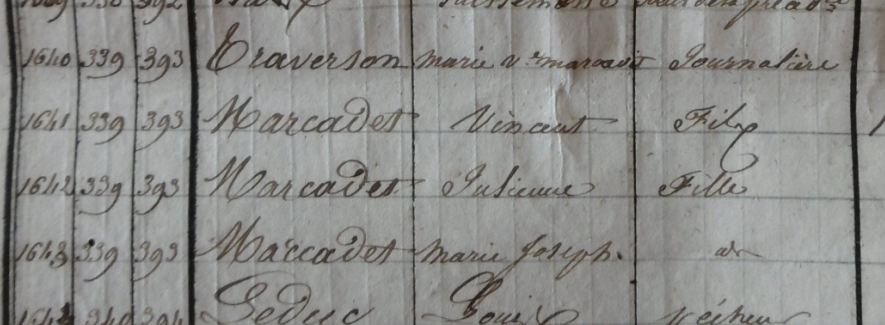 1640 339 393 Traverson marie ve marcadet Journalière
1641 339 393 Marcadet Vincent Fils
1642 339 393 Marcadet Julienne Fille
1643 339 393 Marcadet marie Joseph. id
1644 340 394 Leduc Louis Pécheur